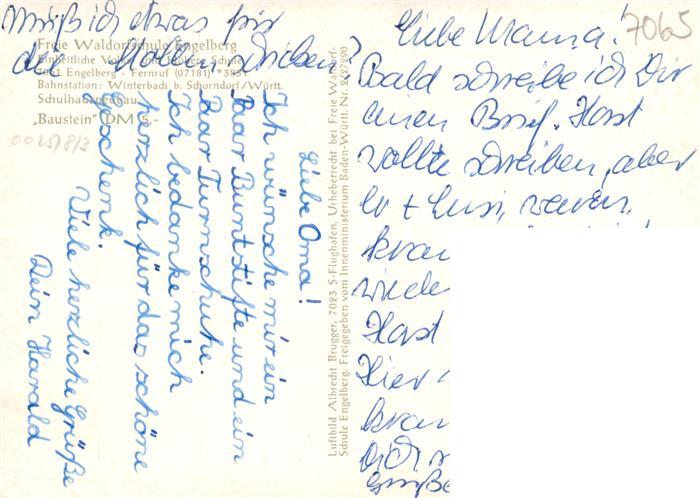 Muß ich etwas für
die Stollen schicken?
Freie Waldorfschule Engelberg
Einheitliche Volks- und Höhere Schule
7061 Engelberg - Fernruf (07181) *3851
Bahnstation: Winterbach b. Schorndorf/Württ.
Schulhausneubau
„Baustein" DM 5.-
Liebe Oma!
Ich wünsche mir ein
Paar Buntstifte und ein
Paar Turnschuhe.
Ich bedanke mich
herzlich für das schöne
Geschenk.
Viele herzliche Grüße
Dein Harald
Luftbild Albrecht Brugger, 7023 S-Flughafen, Urheberrecht bei Freie Waldorf-
Schule Engelberg. Freigegeben vom Innenministerium Baden-Württ. Nr. 2/27290
7065
Liebe Mama!
Bald schreibe ich Dir
einen Brief. Horst
wollte schreiben, aber
Er + Susi, waren
kran
wiede
Horst
Hier
kran
Dich
Grüße